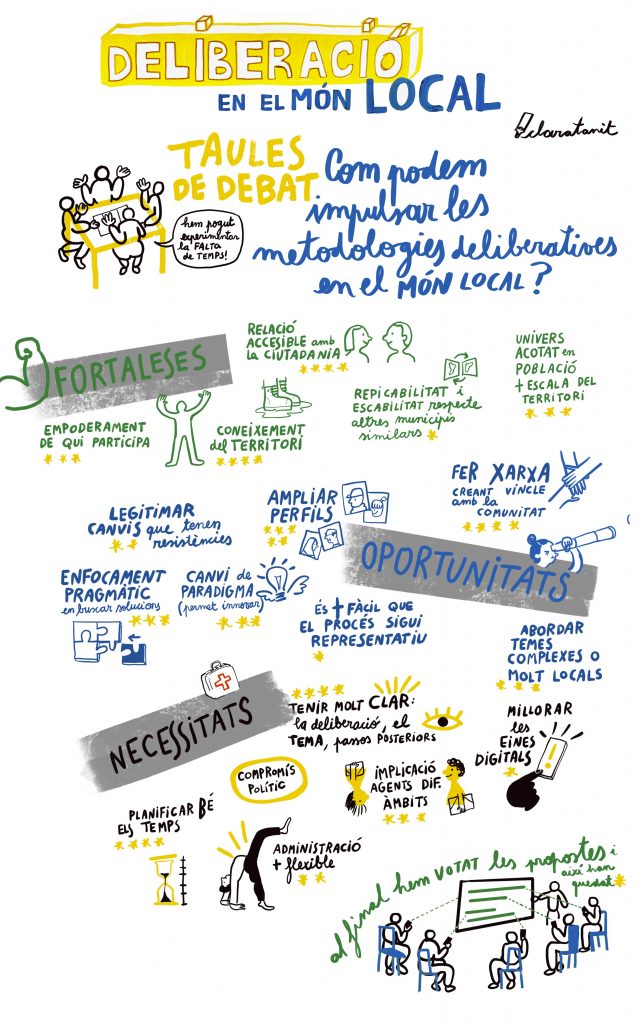 DELIBERACIÓ
EN EL MÓN LOCAL
claratanit
TAULES
DE DEBAT
Com podem
impulsar les
metodologies deliberatives
en el MÓN LOCAL?
hem pogut
experimentar
la FALTA
de TEMPS!
FORTALESES
RELACIÓ
ACCESIBLE amb
LA CIUTADANIA
UNIVERS
ACOTAT en
POBLACIÓ
+ ESCALA DEL
TERRITORI
EMPODERAMENT
DE QUI PARTICIPA
CONEIXEMENT
del TERRITORI
REPICABILITAT i
ESCABILITAT respecte
altres municipis
similars
FER XARXA
CREANT VINCLE
amb la
COMUNITAT
LEGITIMAR
CANVIS que tenen
resistències
AMPLIAR
PERFILS
OPORTUNITATS
ENFOCAMENT
PRAGMÀTIC
en buscar solucions
CANVI de
PARADIGMA
(permet innovar)
ÉS + FÀCIL QUE
EL PROCÉS SIGUI
REPRESENTATIU
ABORDAR
TEMES
COMPLEXES O
MOLT LOCALS
NECESSITATS
TENIR MOLT CLAR:
la deliberació, el
TEMA, passos POSTERIORS
MILLORAR
les
EINES
DIGITALS
COMPROMÍS
POLÍTIC
IMPLICACIÓ
AGENTS DIF.
ÀMBITS
PLANIFICAR BÉ
ELS TEMPS
ADMINISTRACIÓ
+ flexible
al final hem VOTAT les propostes i
així han
quedat